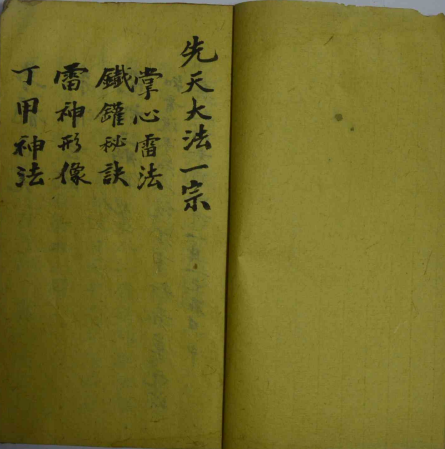 先天大法一宗
掌心雷法
鐵鎈秘訣
雷神形像
丁甲神法